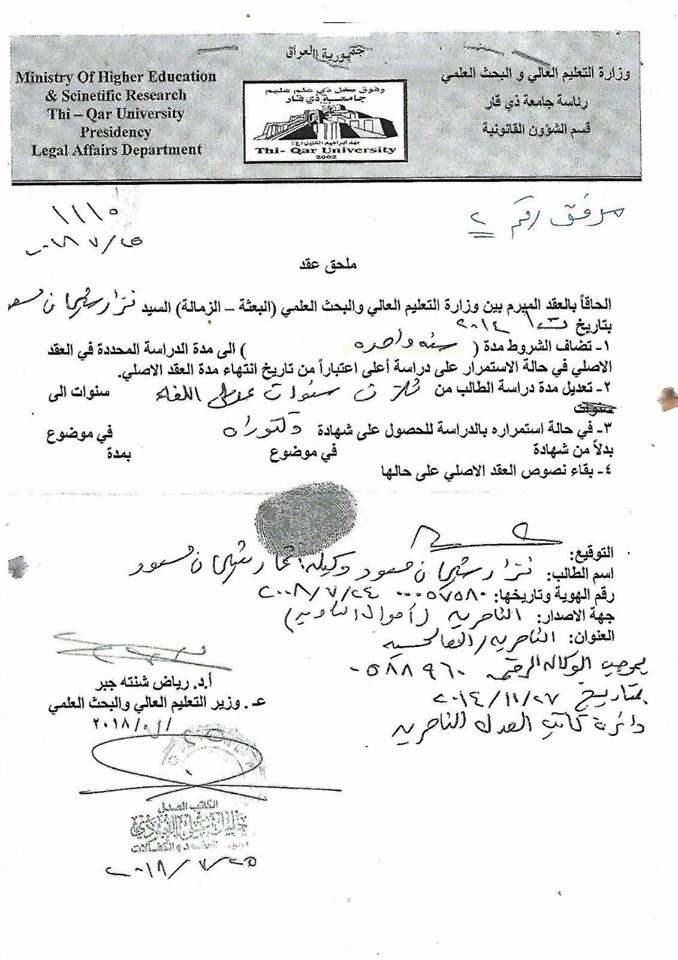 جمهورية العراق
Ministry Of Higher Education
& Scinetific Research
Thi – Qar University
Presidency
Legal Affairs Department
وفوق كل ذي علم عليم
جامعة ذي قار
Thi- Qar University
2002
وزارة التعليم العالي و البحث العلمي
رئاسة جامعة ذي قار
قسم الشؤون القانونية
مرفق رقم ٢
٢٠١٨/٧/٢٥
ملحق عقد
الحاقاً بالعقد المبرم بين وزارة التعليم العالي والبحث العلمي (البعثة – الزمالة) السيد
بتاريخ ٢٠١٤
١- تضاف الشروط مدة ( سنة واحدة ) الى مدة الدراسة المحددة في العقد
الاصلي في حالة الاستمرار على دراسة أعلى اعتباراً من تاريخ انتهاء مدة العقد الاصلي.
٢- تعديل مدة دراسة الطالب من ثلاث سنوات اللغة سنوات الى
سنوات
٣- في حالة استمراره بالدراسة للحصول على شهادة دكتوراه في موضوع
بدلاً من شهادة في موضوع بمدة
٤- بقاء نصوص العقد الاصلي على حالها
التوقيع:
اسم الطالب:
رقم الهوية وتاريخها: ٠٠٠٥٧٥٨٠ ٢٠٠٨/٧/٢٤
جهة الاصدار: الناصرية
العنوان: الناصرية
بموجب الوكالة المرقمة ٠٥٨٨٩٦٠
بتاريخ ٢٠١٤/١١/٢٧
دائرة كاتب العدل الناصرية
أ.د. رياض شنته جبر
عـ. وزير التعليم العالي والبحث العلمي
الكاتب العدل